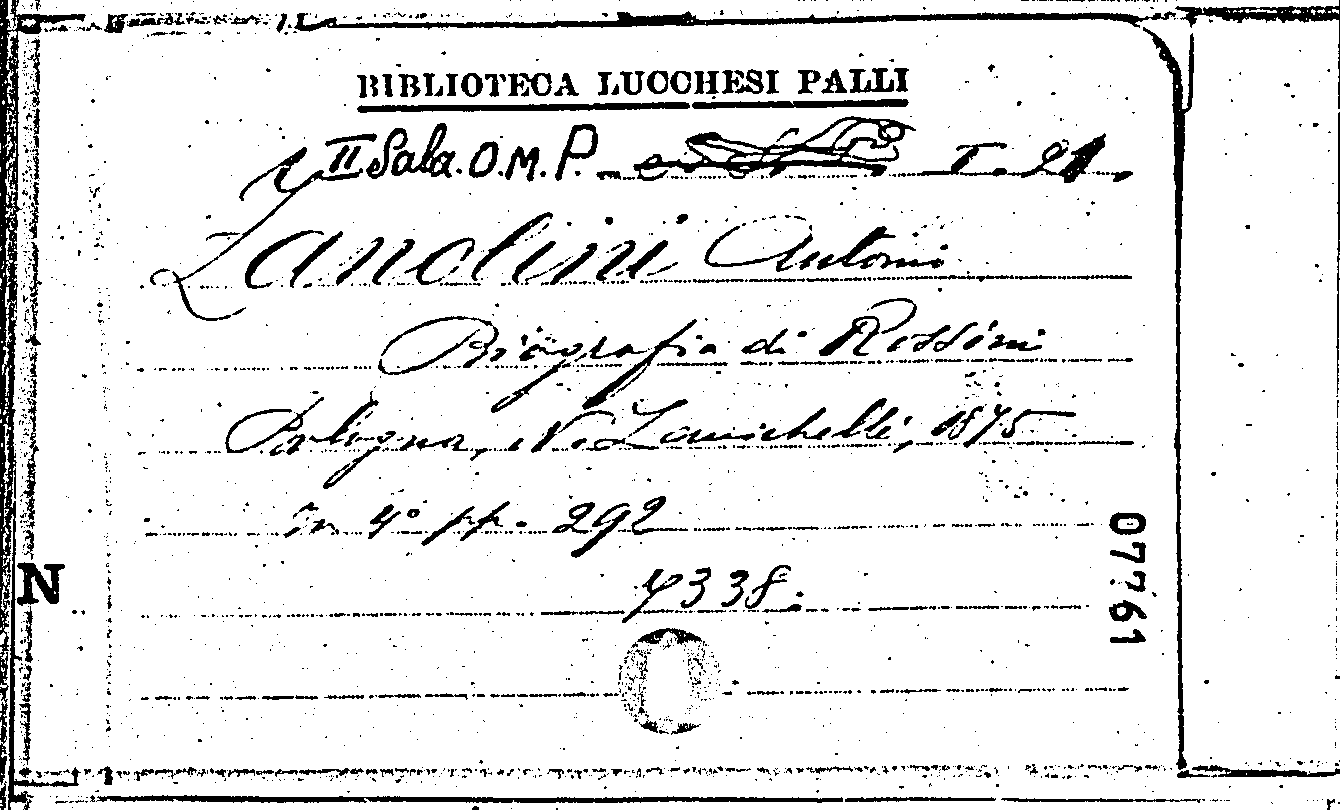 BIBLIOTECA LUCCHESI PALLI
II Sala. O. M. P. I. 21.
Zanolini Antonio
Biografia di Rossini
Bologna, N. Zanichelli, 1875
in 4° pp. 292
4338.
N
07761